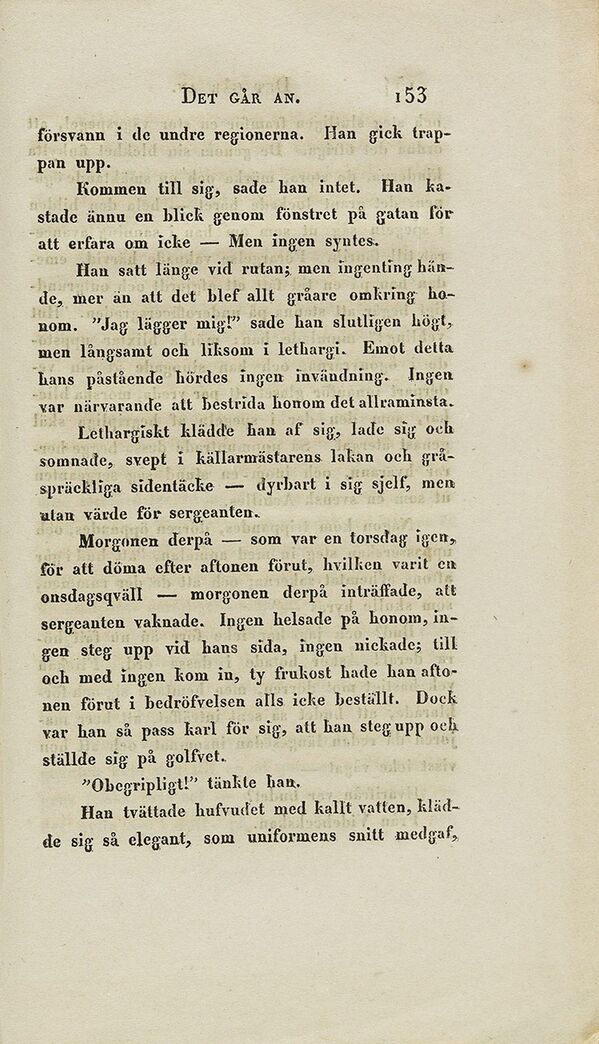 DET GÅR AN. 153
försvann i de undre regionerna. Han gick trap-
pan upp.
Kommen till sig, sade han intet. Han ka-
stade ännu en blick genom fönstret på gatan för
att erfara om icke — Men ingen syntes.
Han satt länge vid rutan; men ingenting hän-
de, mer än att det blef allt gråare omkring ho-
nom. ”Jag lägger mig!” sade han slutligen högt,
men långsamt och liksom i lethargi. Emot detta
hans påstående hördes ingen invändning. Ingen
var närvarande att bestrida honom det allraminsta.
Lethargiskt klädde han af sig, lade sig och
somnade, svept i källarmästarens lakan och grå-
spräckliga sidentäcke — dyrbart i sig sjelf, men
utan värde för sergeanten.
Morgonen derpå — som var en torsdag igen,
för att döma efter aftonen förut, hvilken varit en
onsdagsqväll — morgonen derpå inträffade, att
sergeanten vaknade. Ingen helsade på honom, in-
gen steg upp vid hans sida, ingen nickade; till
och med ingen kom in, ty frukost hade han afto-
nen förut i bedröfvelsen alls icke beställt. Dock
var han så pass karl för sig, att han steg upp och
ställde sig på golfvet.
”Obegripligt!” tänkte han.
Han tvättade hufvudet med kallt vatten, kläd-
de sig så elegant, som uniformens snitt medgaf,